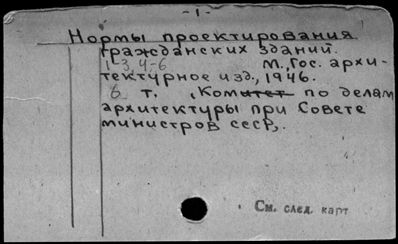 -1-
Нормы проектирования
гражданских зданий.
1-3,4-6 М., Гос. архи-
тектурное изд., 1946.
6 т. , Комитет по делам
архитектуры при Совете
министров СССР,.
См. след. карт